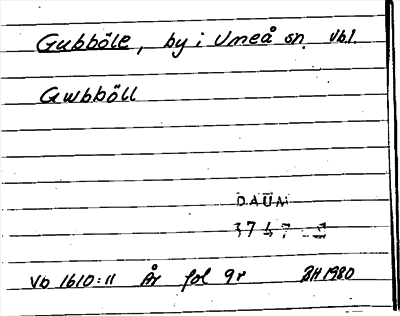 Gubböle, by i Umeå sn. Vb l.
Gwbböll
DAUM
Vb 1610:11 År fol 9r BH 1980